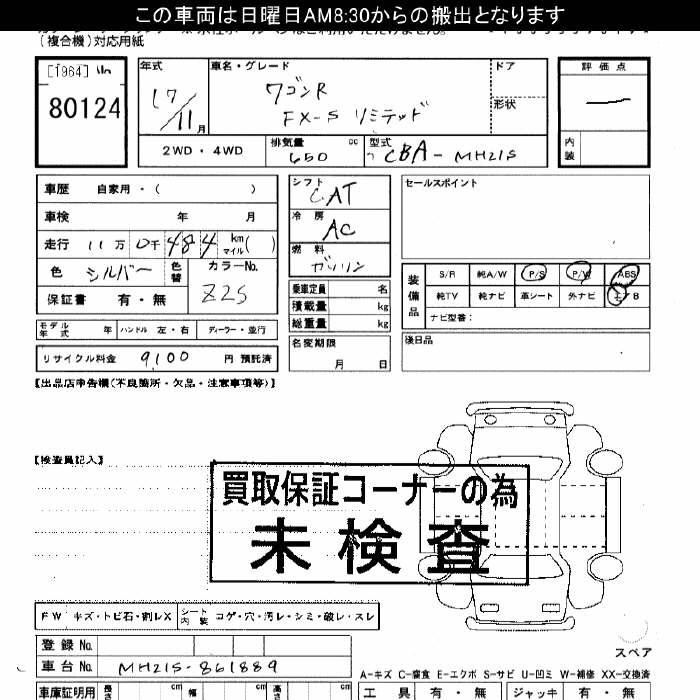 この車両は日曜日AM8:30からの搬出となります
(複合機)対応用紙
[1964]
80124
年式 17/11月
車名・グレード ワゴンR
FX-S リミテッド
ドア
形状
評価点 —
内装
2WD・4WD
排気量 650 cc
型式 CBA-MH21S
車歴 自家用・( )
車検 年 月
走行 11万0千484 km マイル( )
色 シルバー 色替 カラーNo. Z2S
保証書 有・無
モデル年式 年 ハンドル 左・右 ディーラー・並行
リサイクル料金 9,100 円 預託済
シフト CAT
冷房 AC
燃料 ガソリン
乗車定員 名
積載量 kg
総重量 kg
名変期限
月 日
セールスポイント
装備品 S/R 純A/W P/S P/W ABS
純TV 純ナビ 革シート 外ナビ エアB
ナビ型番:
後日品
【出品店申告欄(不良箇所・欠品・注意事項等)】
【検査員記入】
買取保証コーナーの為
未検査
FW キズ・トビ石・割レX シート内装 コゲ・穴・汚レ・シミ・破レ・スレ
登録No.
車台No. MH21S-861889
スペア
A-キズ C-腐食 E-エクボ S-サビ U-凹ミ W-補修 XX-交換済
車庫証明用 長さ cm 幅 cm 高さ cm
工具 有・無 ジャッキ 有・無